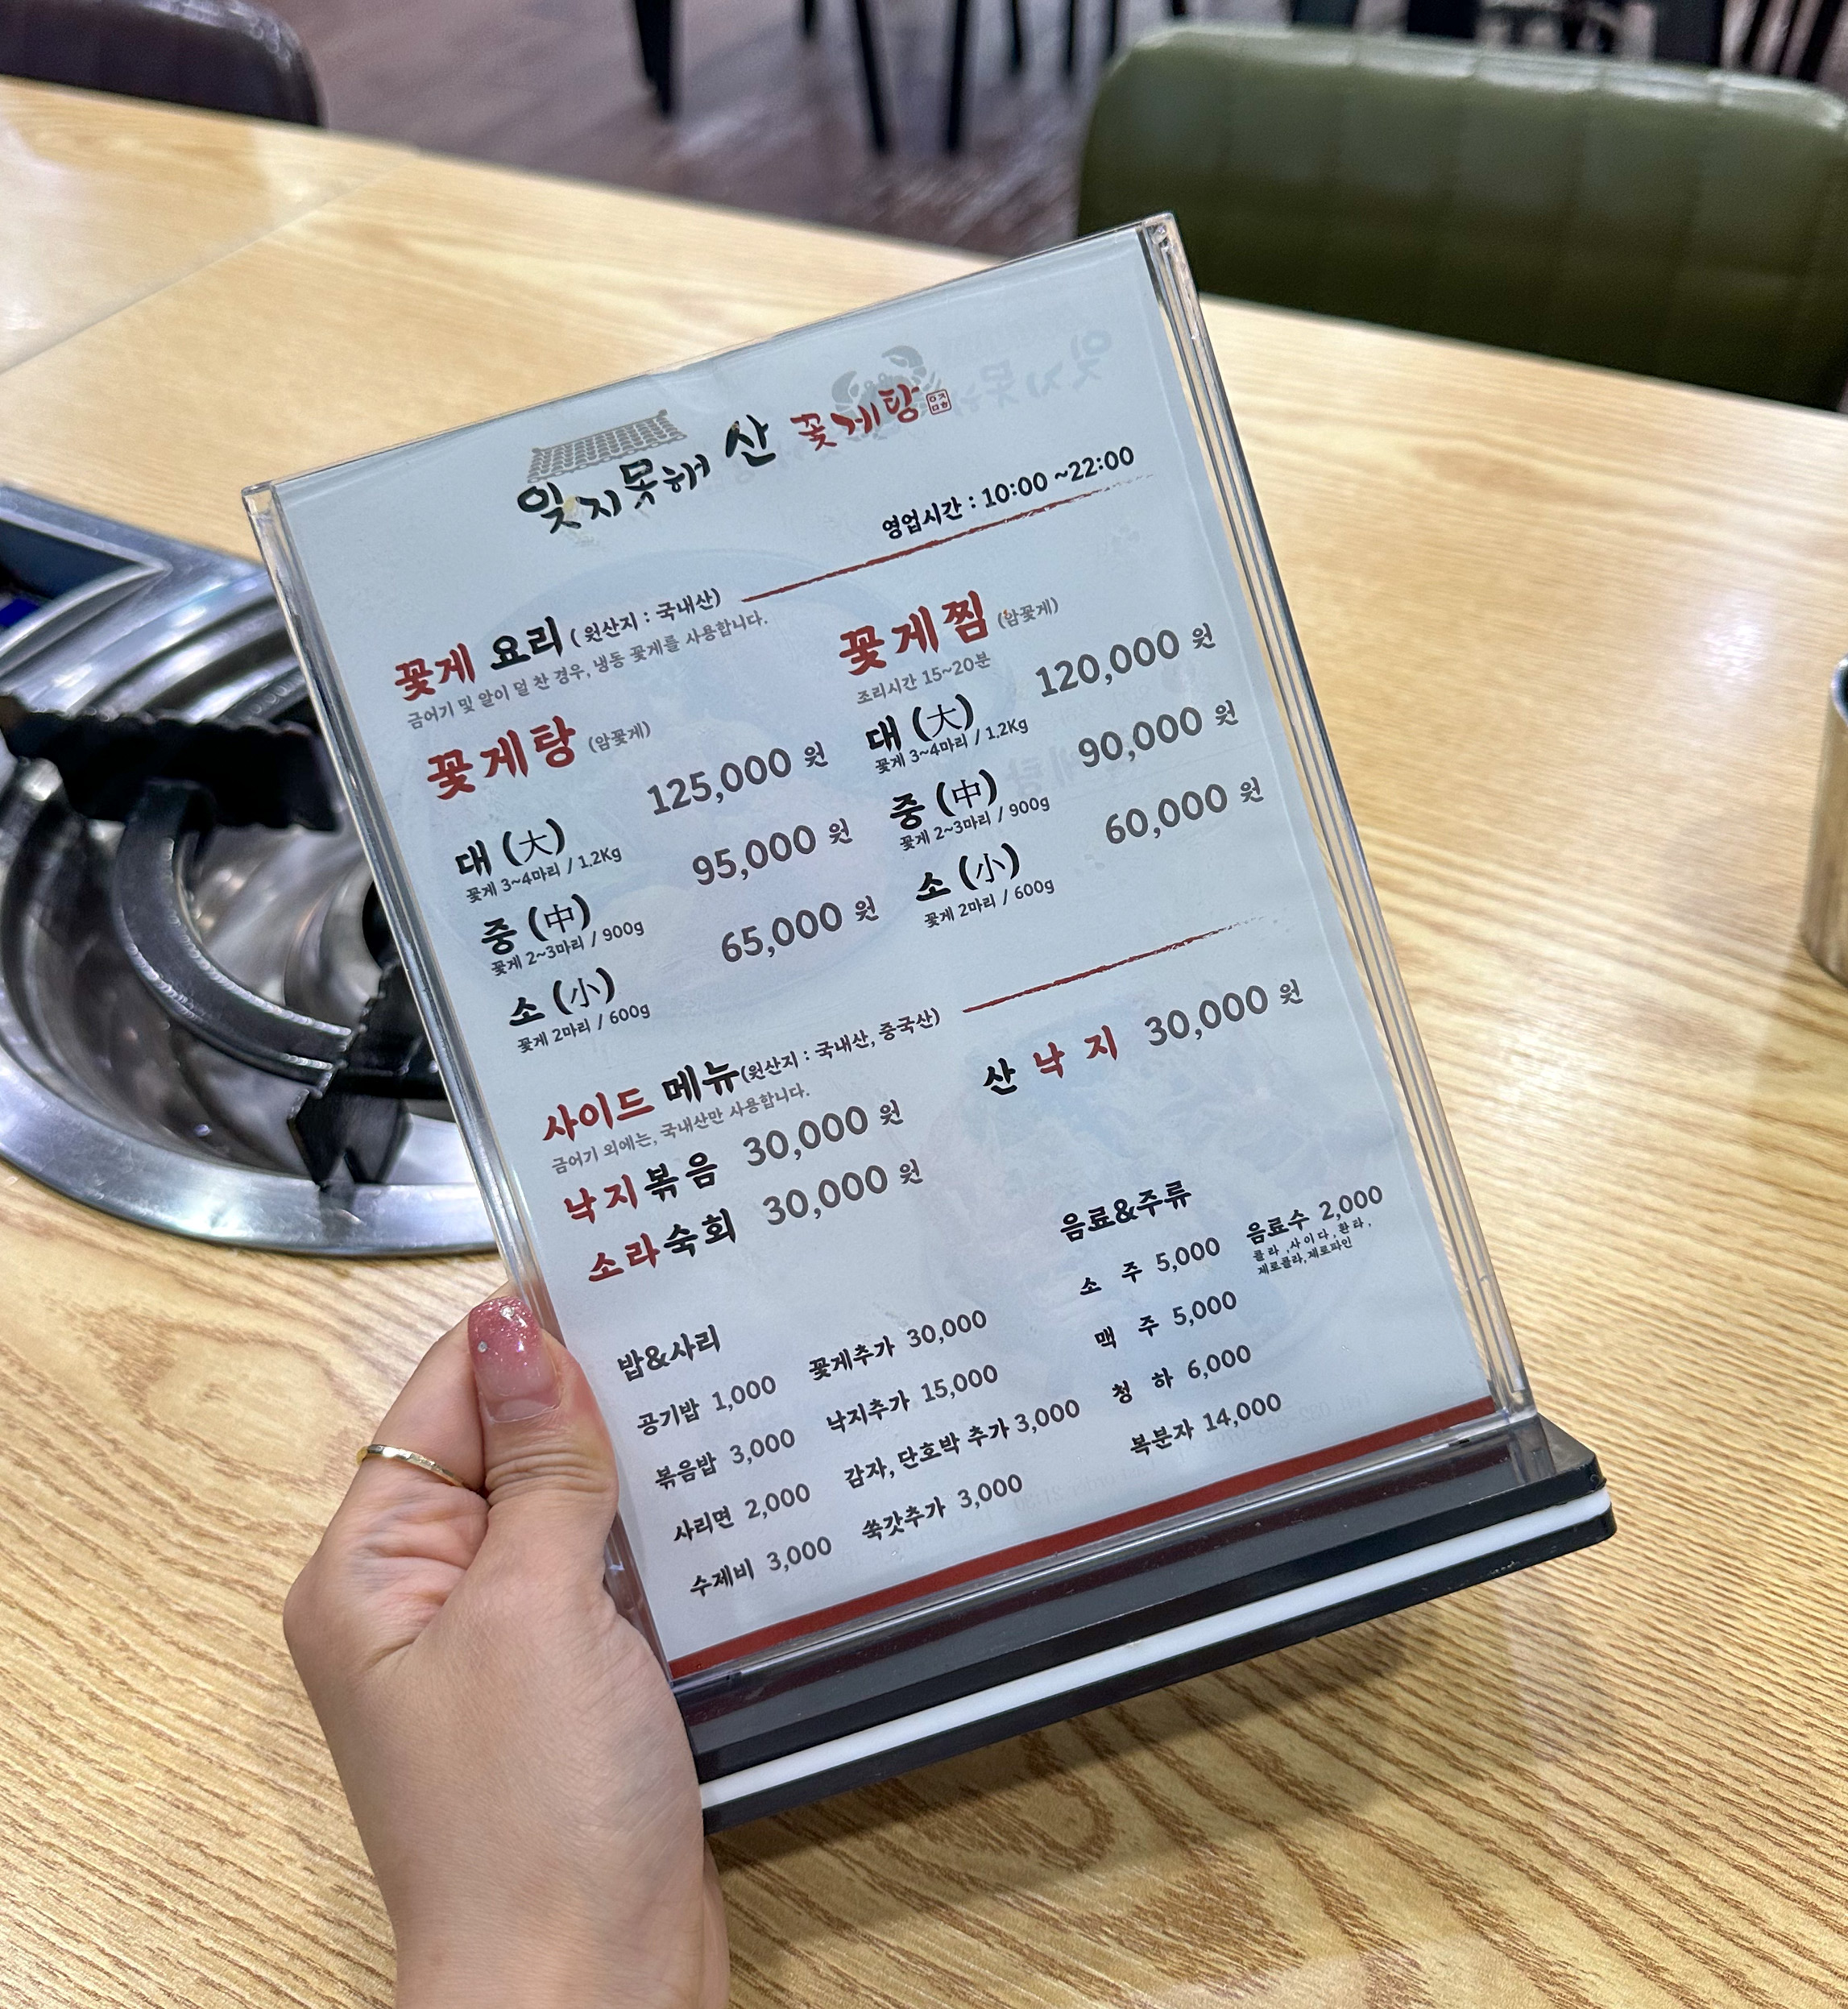 잊지못해 산 꽃게탕
영업시간 : 10:00 ~22:00
꽃게 요리 ( 원산지 : 국내산)
금어기 및 알이 덜 찬 경우, 냉동 꽃게를 사용합니다.
꽃게탕 (암꽃게)
대 (大) 125,000 원
꽃게 3~4마리 / 1.2Kg
중 (中) 95,000 원
꽃게 2~3마리 / 900g
소 (小) 65,000 원
꽃게 2마리 / 600g
꽃게찜 (암꽃게)
조리시간 15~20분
대 (大) 120,000 원
꽃게 3~4마리 / 1.2Kg
중 (中) 90,000 원
꽃게 2~3마리 / 900g
소 (小) 60,000 원
꽃게 2마리 / 600g
사이드 메뉴(원산지 : 국내산, 중국산)
금어기 외에는, 국내산만 사용합니다.
낙지볶음 30,000 원
소라숙회 30,000 원
산 낙 지 30,000 원
밥&사리
공기밥 1,000
볶음밥 3,000
사리면 2,000
수제비 3,000
꽃게추가 30,000
낙지추가 15,000
감자, 단호박 추가 3,000
쑥갓추가 3,000
음료&주류
소 주 5,000
맥 주 5,000
청 하 6,000
복분자 14,000
음료수 2,000
콜라 ,사이다, 환타,
제로콜라, 제로파인